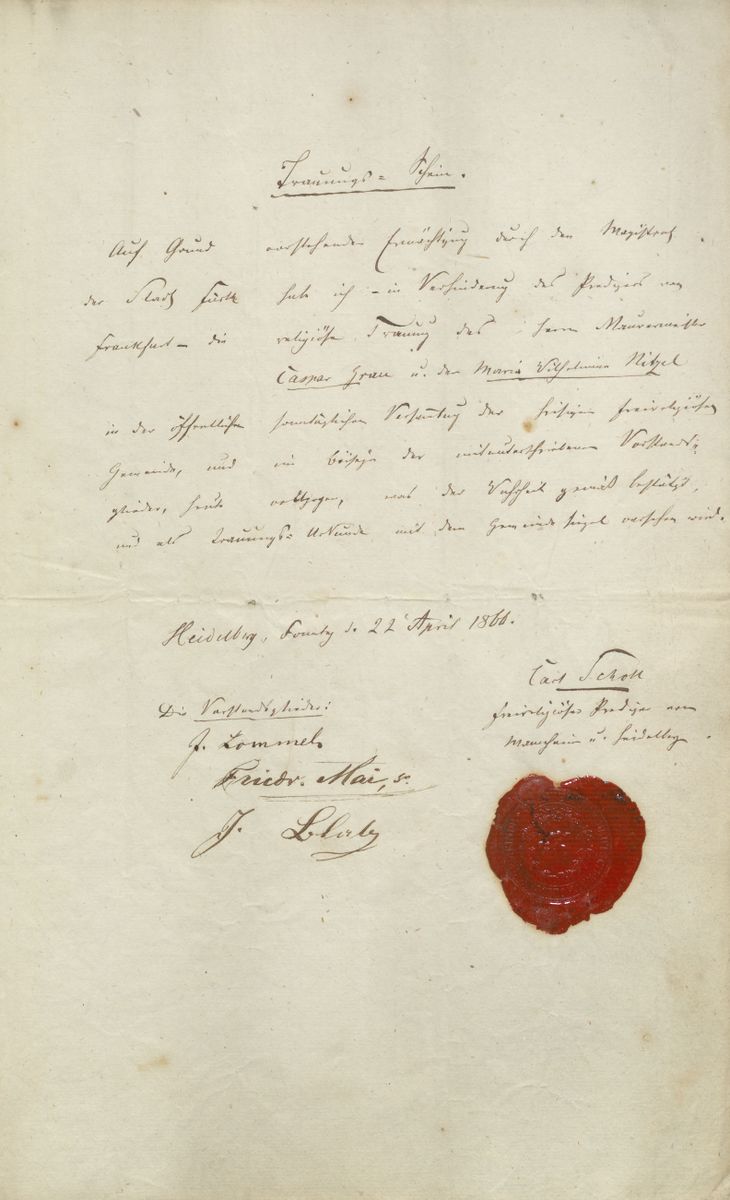 Trauungs=Schein.
Auf Grund vorstehender Ermächtigung durch den Magistrat
der Stadt Fürth habe ich – in Verhinderung des Predigers von
Frankfurt – die religiöse Trauung des Herrn Maurermeister
Caspar Grau u. der Maria Wilhelmine Nitzel
in der öffentlichen sonntäglichen Versammlung der hiesigen freireligiösen
Gemeinde, und im Beiseyn der mitunterschriebenen Vorstands=
glieder, heute vollzogen, was der Wahrheit gemäß bestätigt,
und als Trauungs=Urkunde mit dem Gemeindesiegel versehen wird.
Heidelberg, Sonntag d. 22 April 1860.
Carl Scholl
freireligiöser Prediger von
Mannheim u. Heidelberg.
Die Vorstandsglieder:
J. Lommel
Friedr. Mai, sr.
J.